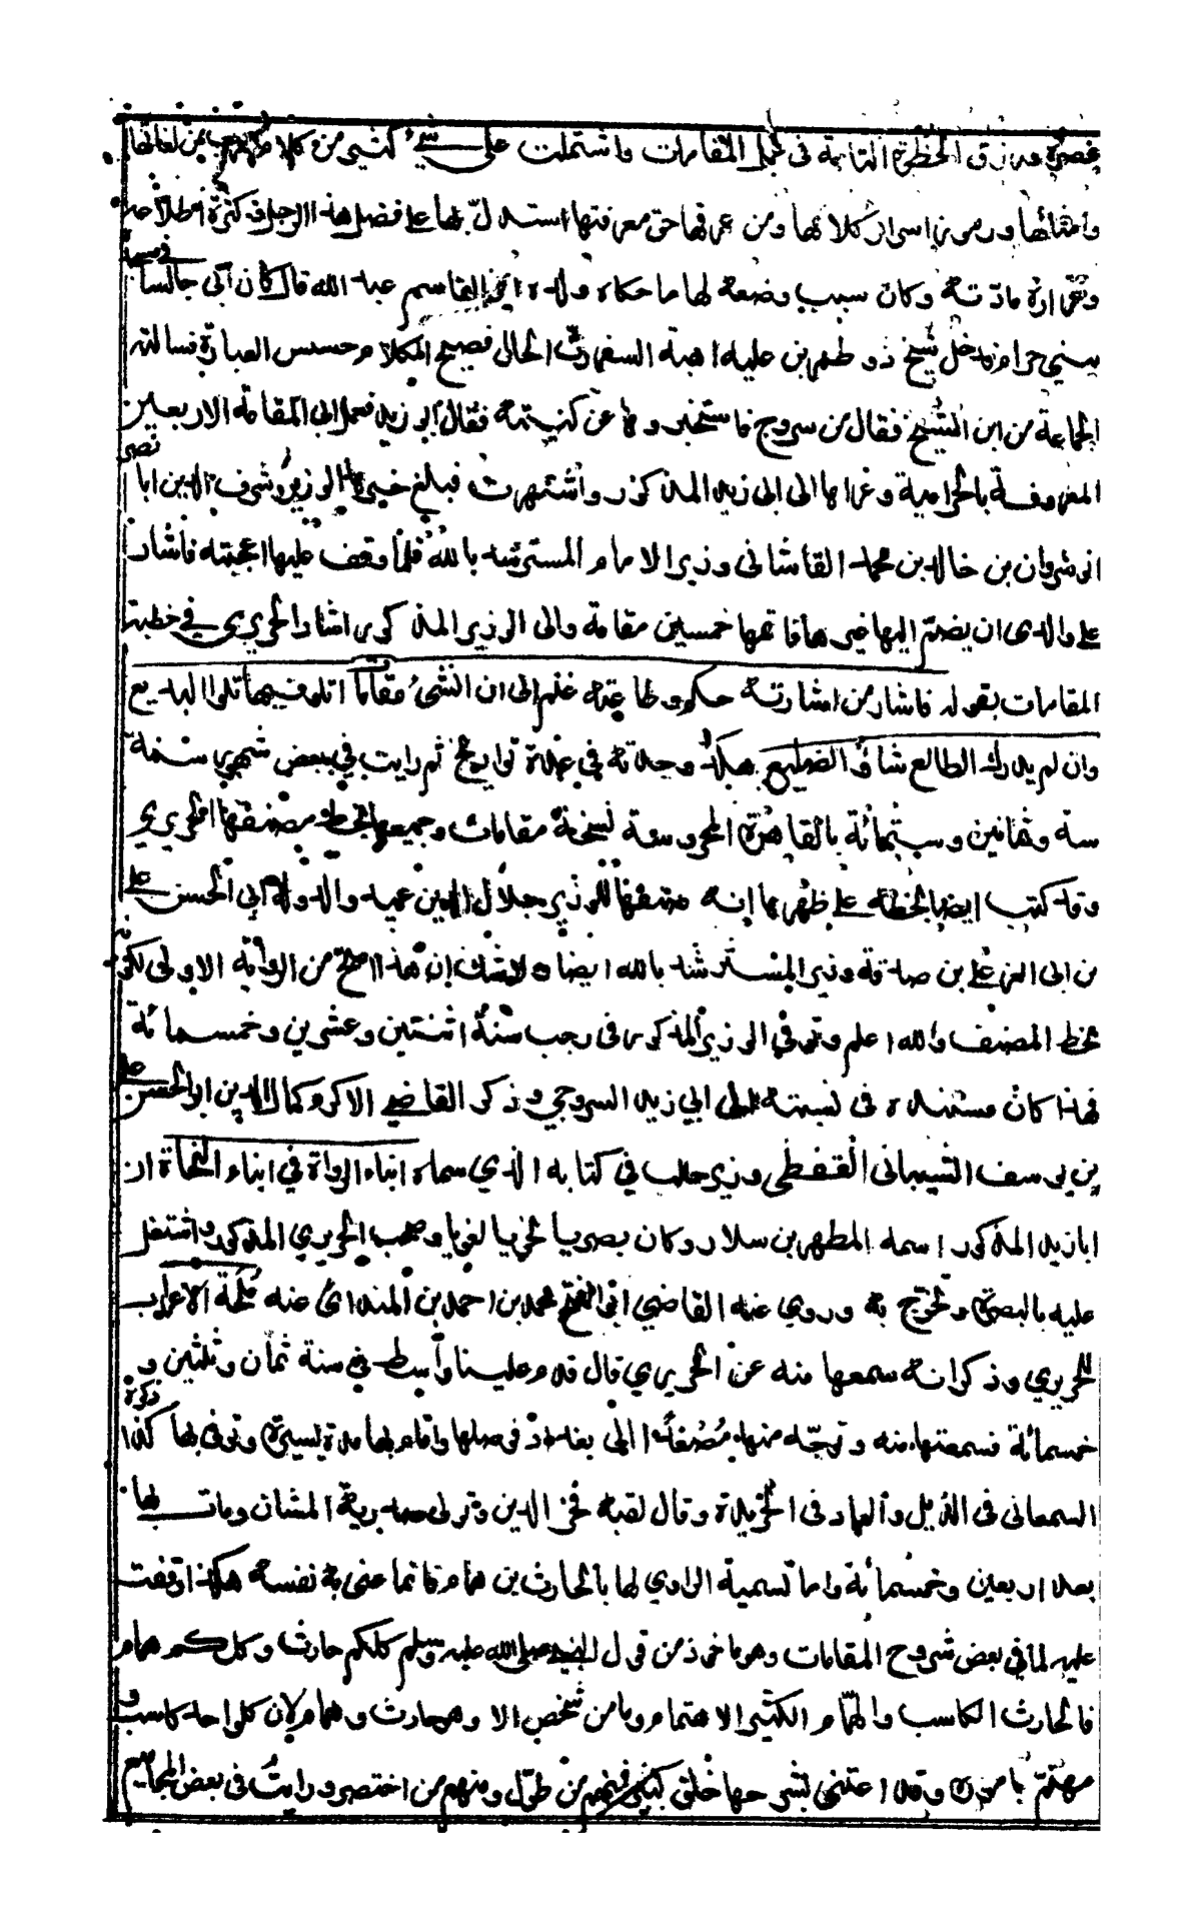 عصره ورزق الحظوة التامة في عمل المقامات واشتملت على شئ كثير من كلام العرب من لغاتها
وامثالها ورموز اسرار كلامها ومن عرفها حق معرفتها استدل بها على فضل هذا الرجل وكثرة اطلاعه
وغزارة مادته وكان سبب وضعه لها ما حكاه ولده ابو القاسم عبد الله قال كان ابى جالسا في مسجد
ببني حرام فدخل شيخ ذو طمرين عليه اهبة السفر رث الحال فصيح الكلام حسن العبارة فسالته
الجماعة من اين الشيخ فقال من سروج فاستخبروه عن كنيته فقال ابو زيد فعمل ابى المقامة الاربعين
المعروفة بالحرامية وعزاها الى ابى زيد المذكور واشتهرت فبلغ خبرها الوزير شرف الدين ابا نصر
انوشروان بن خالد بن محمد القاشانى وزير الامام المسترشد بالله فلما وقف عليها اعجبته فاشار
على والدى ان يضم اليها غيرها فاتمها خمسين مقامة والى الوزير المذكور اشار الحريري في خطبة
المقامات بقوله فاشار من اشارته حكم وطاعته غنم الى ان انشئ مقامات اتلو فيها تلو البديع
وان لم يدرك الظالع شاو الضليع هكذا وجدته في عدة تواريخ ثم رايت في بعض شهور سنة
ستة وثمانين وستمائة بالقاهرة المحروسة نسخة مقامات وجميعها بخط مصنفها الحريري
وقد كتب ايضا بخطه على ظهرها انه صنفها للوزير جلال الدين عميد الدولة ابى الحسن على
بن ابى العز على بن صدقة وزير المسترشد بالله ايضا ولا شك ان هذا اصح من الرواية الاولى لكونه
بخط المصنف والله اعلم وتوفي الوزير المذكور فى رجب سنة اثنتين وعشرين وخمسمائة
فهذا كان مستنده فى نسبته الى ابي زيد السروجي وذكر القاضي الاكرم كمال الدين ابو الحسن على
بن يوسف الشيبانى القفطى وزير حلب في كتابه الذي سماه انباء الرواة في ابناء النحاة ان
ابا زيد المذكور اسمه المطهر بن سلار وكان بصريا نحويا لغويا وصحب الحريري المذكور واشتغل
عليه بالبصرة وتخرج به وروي عنه القاضي ابو الفتح محمد بن احمد بن المندائي عنه ملحة الاعراب
للحريري وذكر انه سمعها منه عن الحريري قال قدم علينا واسط في سنة ثمان وثلثين و
خمسمائة فسمعتها منه وتوجه منها مصعدا الى بغداد فوصلها واقام بها مدة يسيرة وتوفى بها كذا ذكره
السمعانى فى الذيل والعماد فى الخريدة وقال لقبه فخر الدين وتولى صدرية المشان ومات بها
بعد اربعين وخمسمائة واما تسمية الراوي لها بالحارث بن همام فانما عنى به نفسه هكذا وقفت
عليه لما في بعض شروح المقامات وهو ماخوذ من قول النبي صلى الله عليه وسلم كلكم حارث وكلكم همام
فالحارث الكاسب والهمام الكثير الاهتمام وما من شخص الا وهو حارث وهمام لان كل احد كاسب و
مهتم باموره وقد اعتنى بشرحها خلق كثير فمنهم من طول ومنهم من اختصر ورايت فى بعض المجاميع